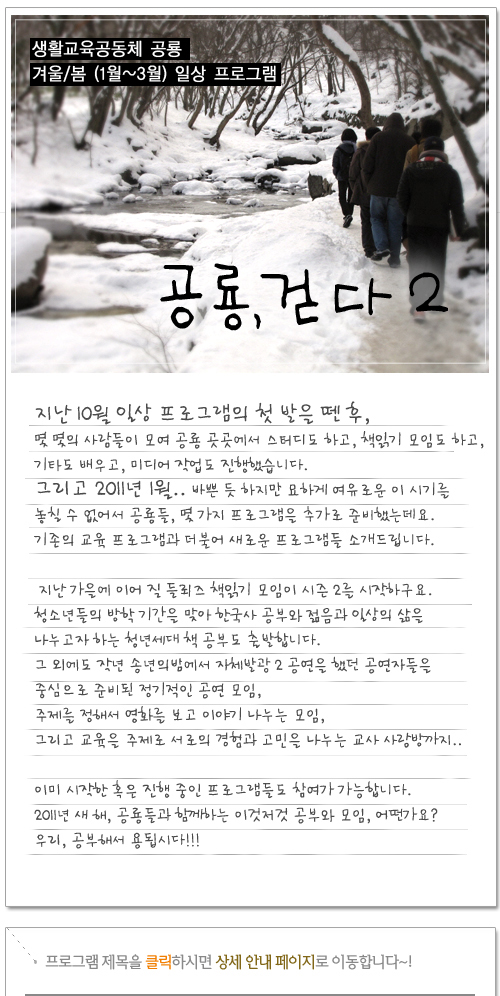 생활교육공동체 공룡
겨울/봄 (1월~3월) 일상 프로그램
공룡, 걷다 2
지난 10월 일상 프로그램의 첫 발을 뗀 후,
몇 몇의 사람들이 모여 공룡 곳곳에서 스터디도 하고, 책읽기 모임도 하고,
기타도 배우고, 미디어 작업도 진행했습니다.
그리고 2011년 1월.. 바쁜 듯 하지만 요하게 여유로운 이 시기를
놓칠 수 없어서 공룡들, 몇 가지 프로그램을 추가로 준비했는데요.
기존의 교육 프로그램과 더불어 새로운 프로그램들 소개드립니다.
지난 가을에 이어 질 들뢰즈 책읽기 모임이 시즌 2를 시작하구요.
청소년들의 방학 기간을 맞아 한국사 공부와 젊음과 일상의 삶을
나누고자 하는 청년세대 책 공부도 출발합니다.
그 외에도 작년 송년의밤에서 자체발광 2 공연을 했던 공연자들을
중심으로 준비된 정기적인 공연 모임,
주제를 정해서 영화를 보고 이야기 나누는 모임,
그리고 교육을 주제로 서로의 경험과 고민을 나누는 교사 사랑방까지..
이미 시작한 혹은 진행 중인 프로그램들도 참여가 가능합니다.
2011년 새 해, 공룡들과 함께하는 이것저것 공부와 모임, 어떤가요?
우리, 공부해서 용됩시다!!!
프로그램 제목을 클릭하시면 상세 안내 페이지로 이동합니다~!